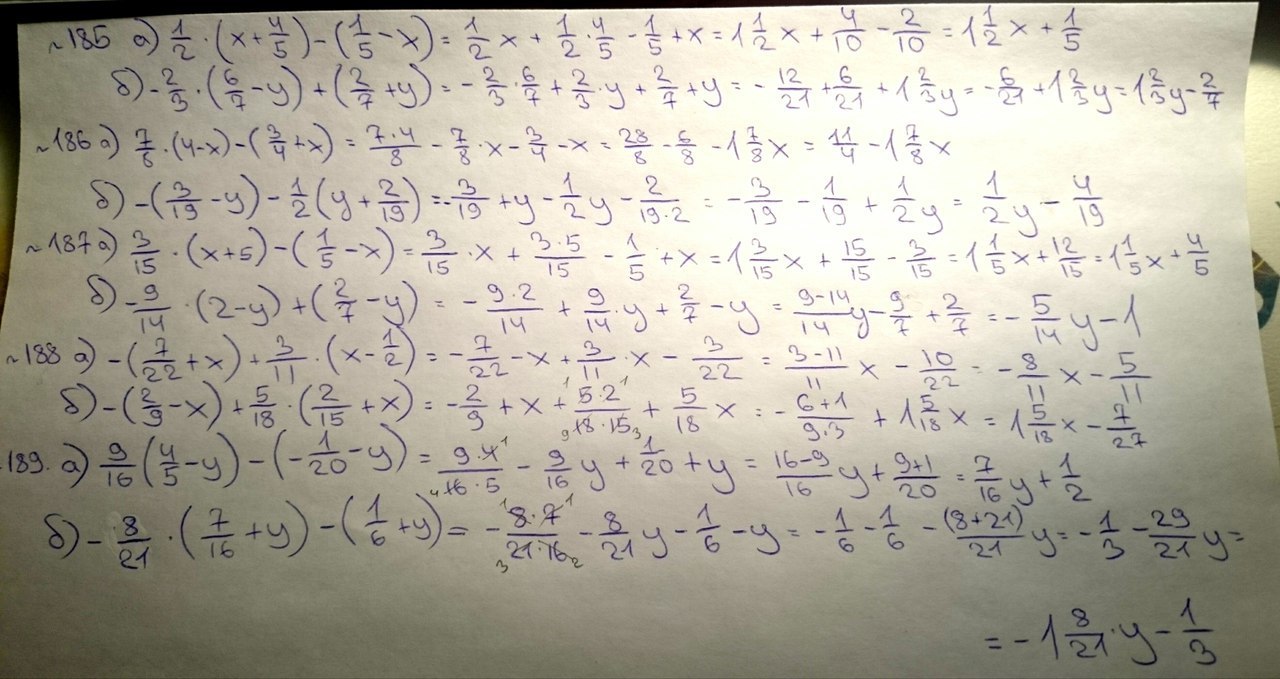 ~185 а) 1/2 · (x + 4/5) - (1/5 - x) = 1/2 x + 1/2 · 4/5 - 1/5 + x = 1 1/2 x + 4/10 - 2/10 = 1 1/2 x + 1/5
б) -2/3 · (6/7 - y) + (2/7 + y) = -2/3 · 6/7 + 2/3 · y + 2/7 + y = -12/21 + 6/21 + 1 2/3 y = -6/21 + 1 2/3 y = 1 2/3 y - 2/7
~186 а) 7/8 · (4-x) - (3/4 + x) = 7·4/8 - 7/8 · x - 3/4 - x = 28/8 - 6/8 - 1 7/8 x = 11/4 - 1 7/8 x
б) -(3/19 - y) - 1/2 (y + 2/19) = -3/19 + y - 1/2 y - 2/19·2 = -3/19 - 1/19 + 1/2 y = 1/2 y - 4/19
~187 а) 3/15 · (x+5) - (1/5 - x) = 3/15 · x + 3·5/15 - 1/5 + x = 1 3/15 x + 15/15 - 3/15 = 1 1/5 x + 12/15 = 1 1/5 x + 4/5
б) -9/14 · (2-y) + (2/7 - y) = -9·2/14 + 9/14 · y + 2/7 - y = 9-14/14 y - 9/7 + 2/7 = -5/14 y - 1
~188 а) -(7/22 + x) + 3/11 · (x - 1/2) = -7/22 - x + 3/11 · x - 3/22 = 3-11/11 x - 10/22 = -8/11 x - 5/11
б) -(2/9 - x) + 5/18 · (2/15 + x) = -2/9 + x + 5·2/18·15 + 5/18 x = -6+1/9·3 + 1 5/18 x = 1 5/18 x - 7/27
189. а) 9/16 (4/5 - y) - (-1/20 - y) = 9·4/16·5 - 9/16 y + 1/20 + y = 16-9/16 y + 9+1/20 = 7/16 y + 1/2
б) -8/21 · (7/16 + y) - (1/6 + y) = -8·7/21·16 - 8/21 y - 1/6 - y = -1/6 - 1/6 - (8+21)/21 y = -1/3 - 29/21 y =
= -1 8/21 · y - 1/3